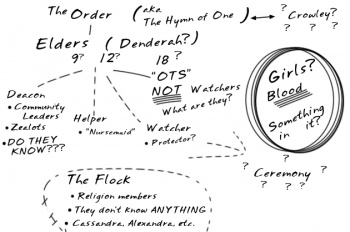 The Order (aka The Hymn of One) Crowley?
? ? ?
Elders (Denderah?)
9? 12? 18?
"OTS"
NOT Watchers
What are they?
Deacon
• Community Leaders
• Zealots
• DO THEY KNOW???
Helper
• "Nursemaid"
Watcher
• Protector?
Girls?
Blood
Something in it?
?
? Ceremony ?
? ?
The Flock
• Religion members
• They don't know ANYTHING
• Cassandra, Alexandra, etc.